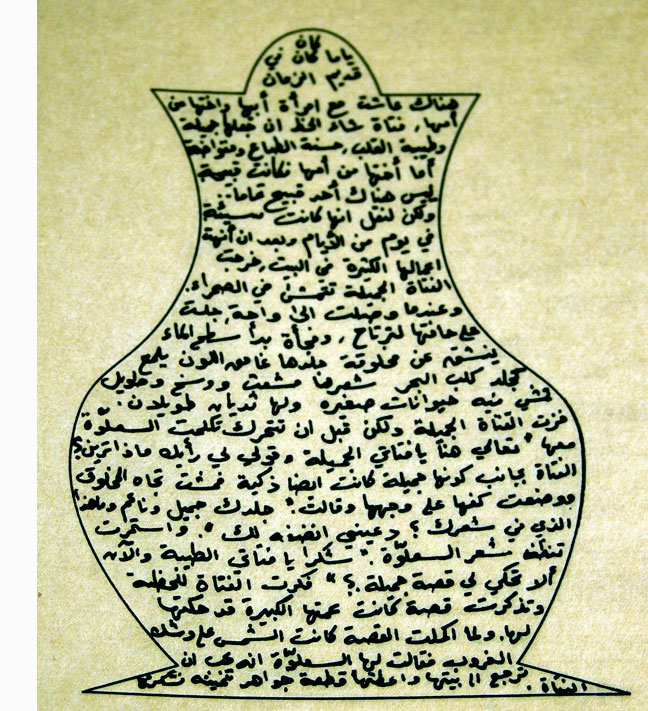 كان
ياما كان في
قديم الزمان
هناك عاشت مع امرأة أبيها واختها من
أمها، فتاة شاء الحظ ان جعلها جميلة
وطيبة القلب، حسنة الطباع ومتواضعة
أما أختها من أمها فكانت قبيحة
ليس هناك أحد قبيح تماما.
ولكن لنقل انها كانت سيئة
في يوم من الأيام وبعد ان أنهت
اعمالها الكثيرة في البيت، خرجت
الفتاة الجميلة تتمشى في الصحراء.
وعندما وصلت الى واحة، جلست
على حافتها لترتاح، وفجأة بدأ سطح الماء
ينشق عن مخلوقة جلدها غامق اللون يلمع
كجلد كلب البحر شعرها مشعث ووسخ وطويل
تمشي فيه حيوانات صغيره ولها ثديان طويلان.
فزت الفتاة الجميلة ولكن قبل ان تتحرك تكلمت السعلوّة
معها "تعالي هنا يا فتاتي الجميلة وقولي لي رأيك ماذا ترين؟
الفتاة بجانب كونها جميلة كانت ايضا ذكية فمشت تجاه المخلوق
ووضعت كفها على وجهها وقالت: "جلدك جميل وناعم وماهذا
الذي في شعرك؟ دعيني انضفه لك". واستمرت
تنظف شعر السعلوّة. "شكرا يا فتاتي الطيبة والآن
ألا تحكي لي قصة جميلة.؟" فكرت الفتاة للحظة
وتذكرت قصة كانت عمتها الكبيرة قد حكتها
لها. ولما اكملت القصة كانت الشمس على وشك
الغروب فقالت لها السعلوّة انه يجب ان
ترجع الى بيتها واعطتها قطعة جواهر ثمينه
الفتاة.